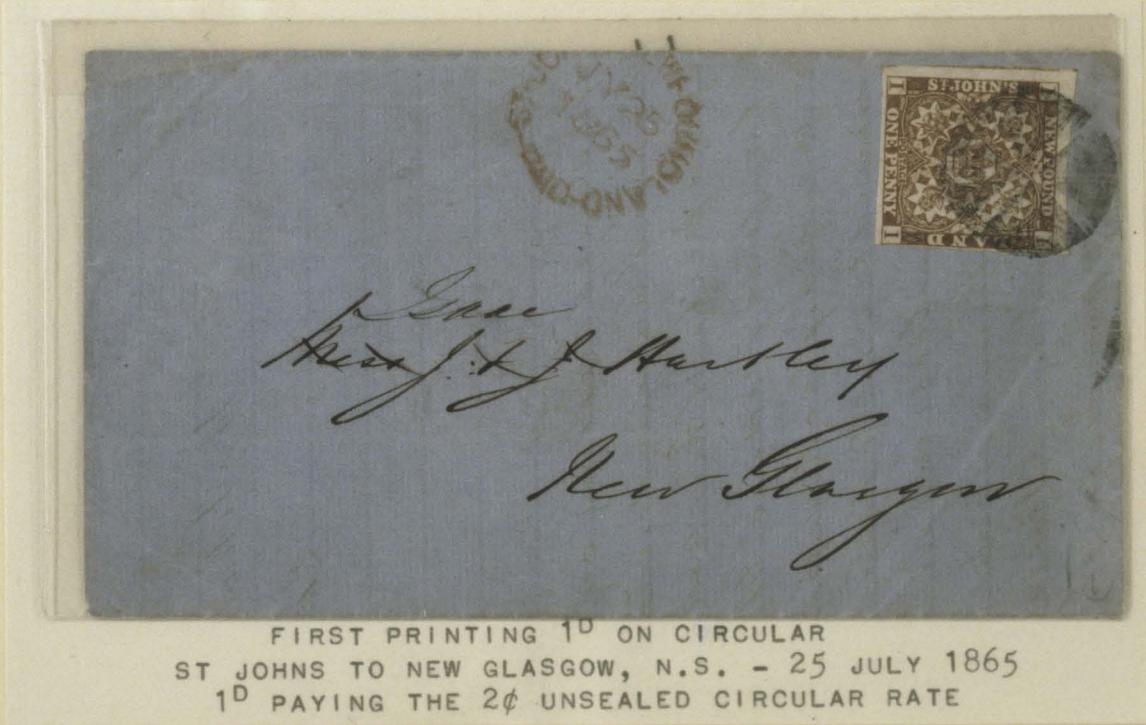 ST. JOHN'S NEWFOUNDLAND
JY 25
1865
ST JOHN'S
NEWFOUNDLAND
POSTAGE
ONE PENNY
1 1 1 1
Isaac
Mess J. & J. Hartley
New Glasgow
FIRST PRINTING 1D ON CIRCULAR
ST JOHNS TO NEW GLASGOW, N.S. - 25 JULY 1865
1D PAYING THE 2¢ UNSEALED CIRCULAR RATE